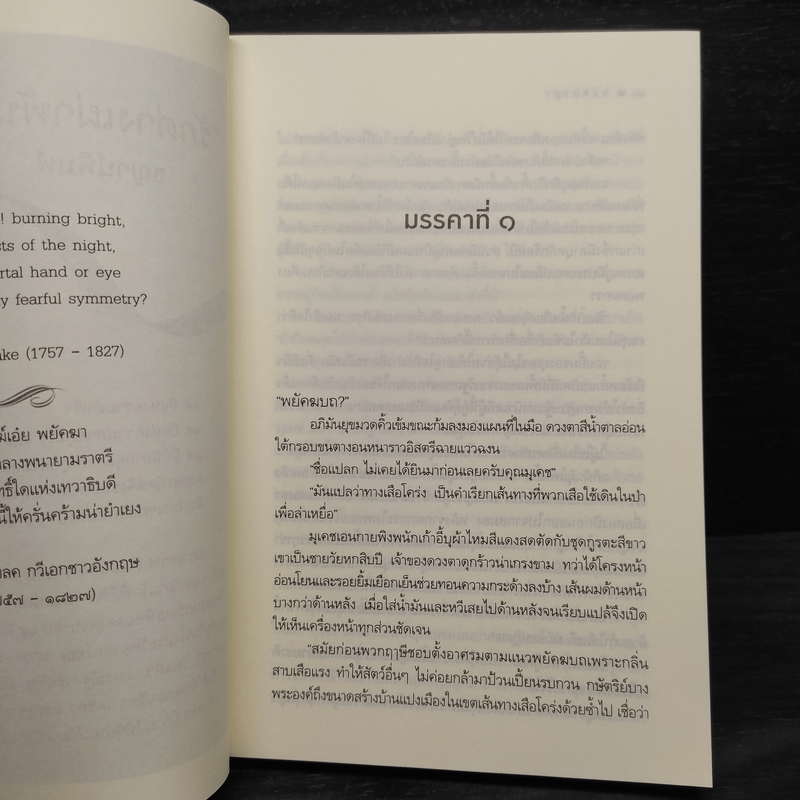 ! burning bright,
of the night,
hand or eye
fearful symmetry?
(1757 – 1827)
พยัคฆา
กลางพนายามราตรี
ใดแห่งเทวาธิบดี
ให้ครั่นคร้ามน่ายำเยง
กวีเอกชาวอังกฤษ
– ๑๘๒๗)
มรรคาที่ ๑
“พยัคฆบถ?”
อภิมันยุขมวดคิ้วเข้มขณะก้มลงมองแผนที่ในมือ ดวงตาสีน้ำตาลอ่อน
ใต้กรอบขนตางอนหนาราวอิสตรีฉายแววฉงน
“ชื่อแปลก ไม่เคยได้ยินมาก่อนเลยครับคุณมุเคช”
“มันแปลว่าทางเสือโคร่ง เป็นคำเรียกเส้นทางที่พวกเสือใช้เดินในป่า
เพื่อล่าเหยื่อ”
มุเคชเอนกายพิงพนักเก้าอี้บุผ้าไหมสีแดงสดตัดกับชุดกูรตะสีขาว
เขาเป็นชายวัยหกสิบปี เจ้าของดวงตาดุกร้าวน่าเกรงขาม ทว่าได้โครงหน้า
อ่อนโยนและรอยยิ้มเยือกเย็นช่วยทอนความกระด้างลงบ้าง เส้นผมด้านหน้า
บางกว่าด้านหลัง เมื่อใส่น้ำมันและหวีเสยไปด้านหลังจนเรียบแปล้จึงเปิด
ให้เห็นเครื่องหน้าทุกส่วนชัดเจน
“สมัยก่อนพวกฤๅษีชอบตั้งอาศรมตามแนวพยัคฆบถเพราะกลิ่น
สาบเสือแรง ทำให้สัตว์อื่นๆ ไม่ค่อยกล้ามาป้วนเปี้ยนรบกวน กษัตริย์บาง
พระองค์ถึงขนาดสร้างบ้านแปงเมืองในเขตเส้นทางเสือโคร่งด้วยซ้ำไป เชื่อว่า